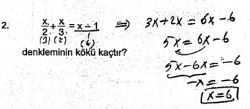 2. x/2 + x/3 = x-1/1 ⇒ 3x+2x = 6x-6
(3) (2) (6) 5x = 6x-6
denkleminin kökü kaçtır? 5x-6x=-6
-x = -6
x=6